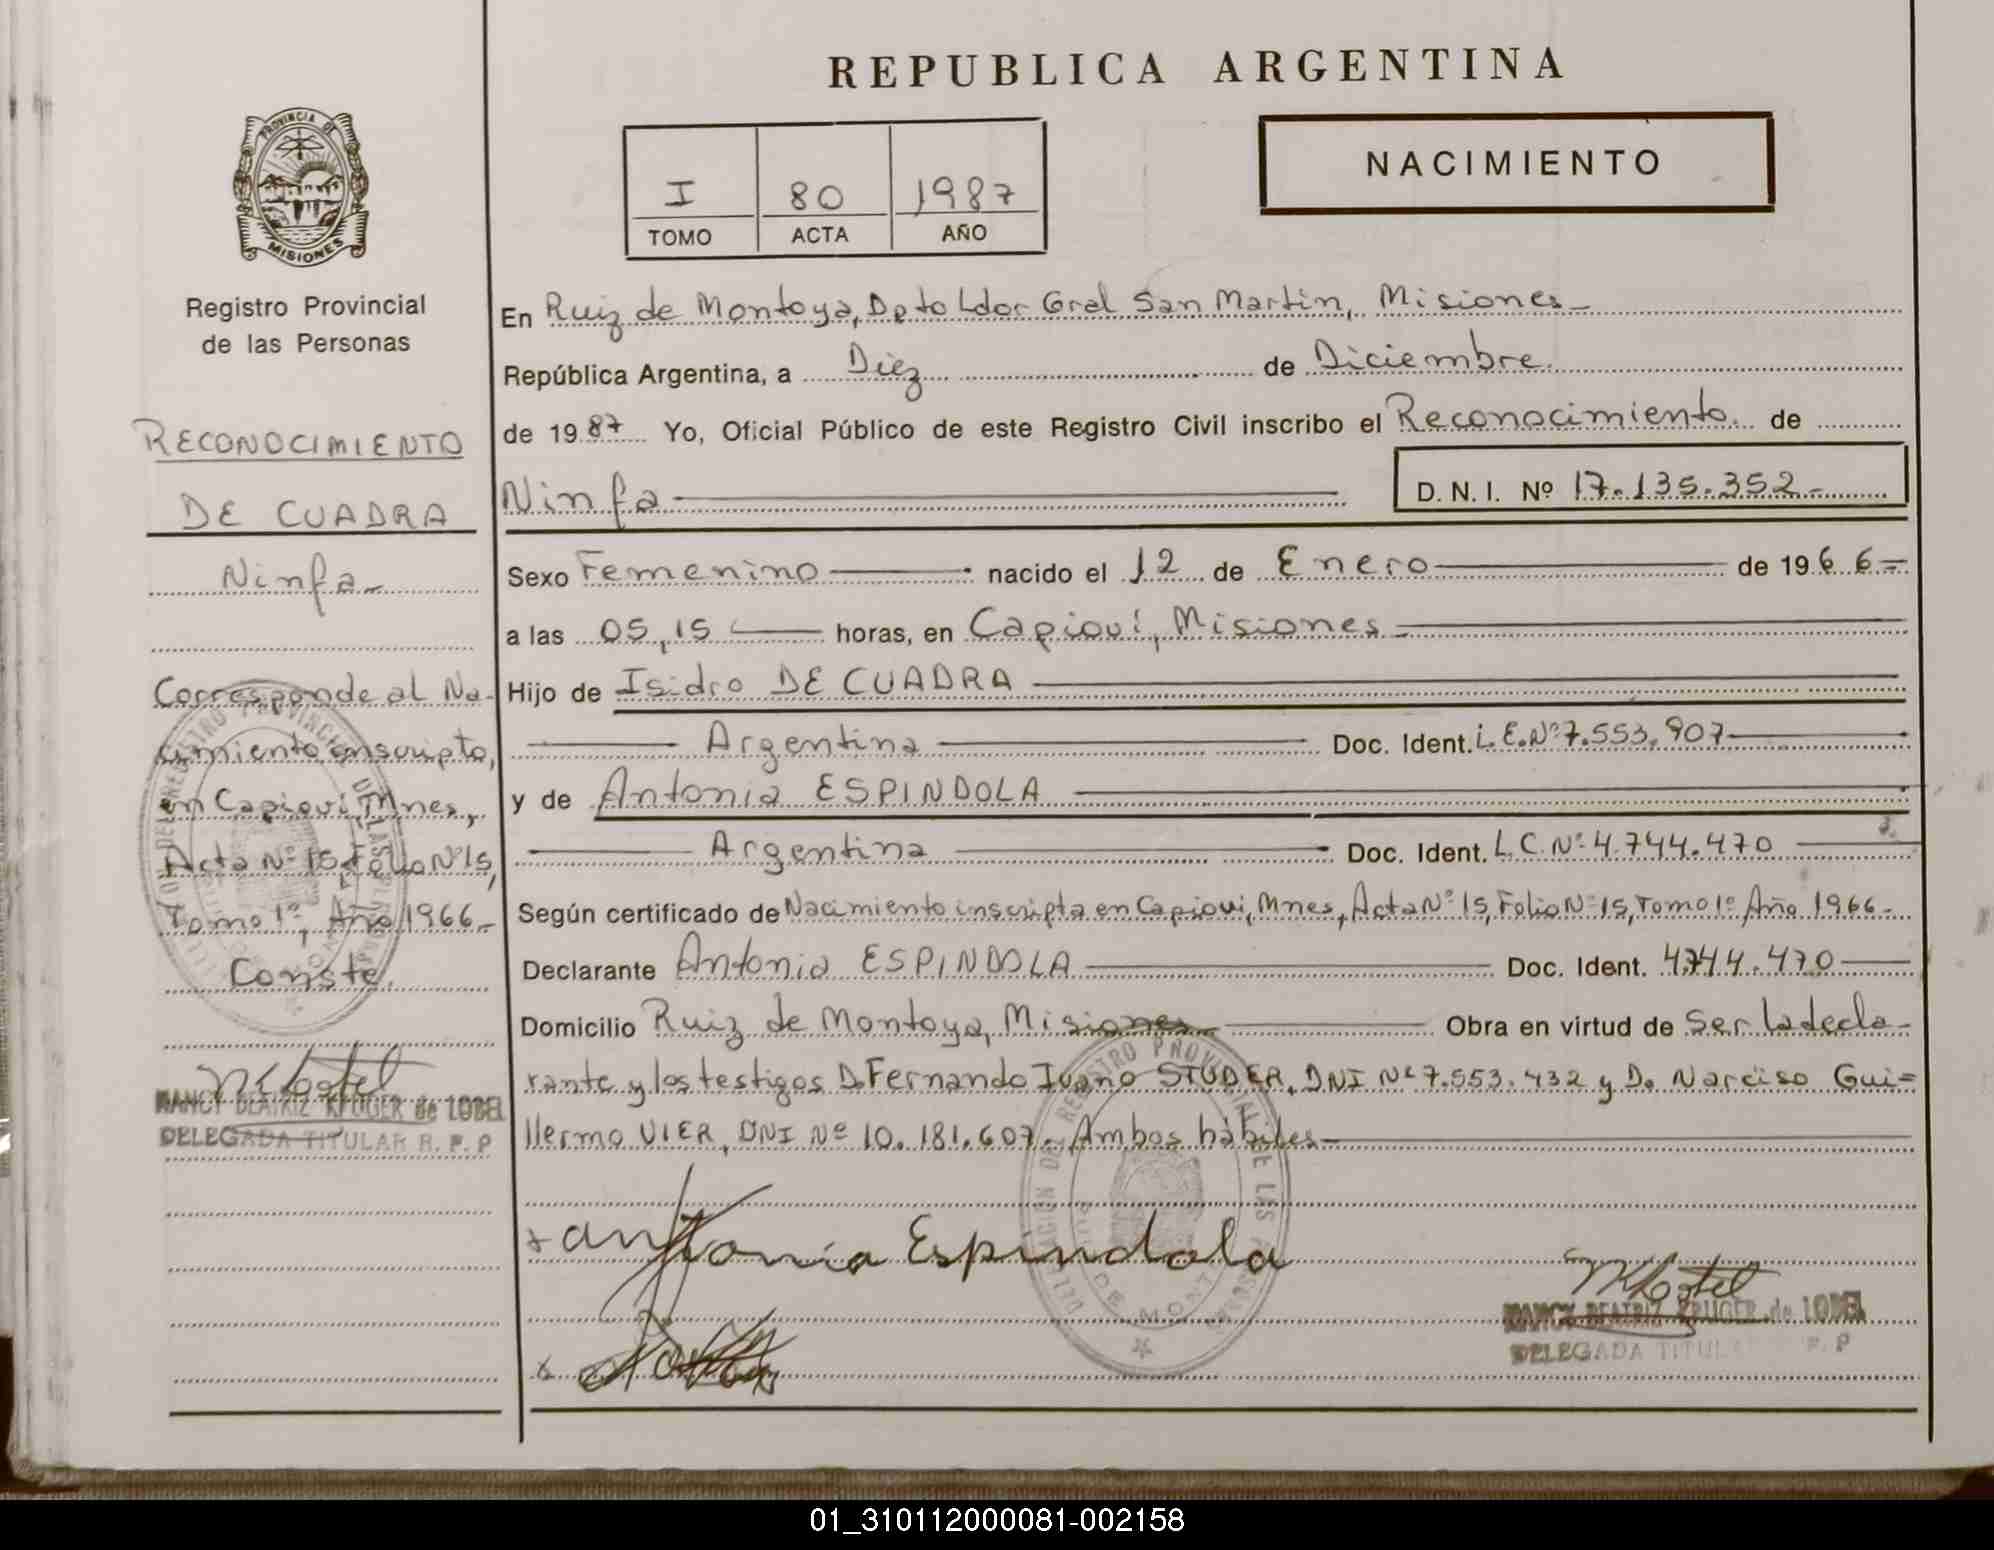 REPUBLICA ARGENTINA
PROVINCIA DE
MISIONES
Registro Provincial
de las Personas
I 80 1987
TOMO ACTA AÑO
NACIMIENTO
RECONOCIMIENTO
DE CUADRA
Ninfa
Corresponde al Na-
cimiento inscripto,
en Capioví, Mnes,
Acta Nº 15, Folio Nº 15,
Tomo 1º, Año 1966.-
Conste.
NANCY BEATRIZ KRUGER de LODEL
DELEGADA TITULAR R. P. P
En Ruiz de Montoya, Dpto Ldor Gral San Martín, Misiones-
República Argentina, a Diez de Diciembre.
de 1987 Yo, Oficial Público de este Registro Civil inscribo el Reconocimiento de
Ninfa D. N. I. Nº 17.135.352-
Sexo Femenino nacido el 12 de Enero de 1966-
a las 05,15 horas, en Capioví, Misiones
Hijo de Isidro DE CUADRA
Argentina Doc. Ident. L.E. Nº 7.553.907
y de Antonia ESPINDOLA
Argentina Doc. Ident. L.C. Nº 4.744.470
Según certificado de Nacimiento inscripta en Capiovi, Mnes, Acta Nº 15, Folio Nº 15, Tomo 1º Año 1966-
Declarante Antonia ESPINDOLA Doc. Ident. 4.744.470
Domicilio Ruiz de Montoya, Misiones Obra en virtud de Ser la decla-
rante y los testigos D. Fernando Ivano STUDER, DNI Nº 7.553.432 y D. Narciso Gui=
llermo VIER, DNI Nº 10.181.607. Ambos hábiles-
x Antonia Espindola
NANCY BEATRIZ KRUGER de LODEL
DELEGADA TITUL P. P
01_310112000081-002158